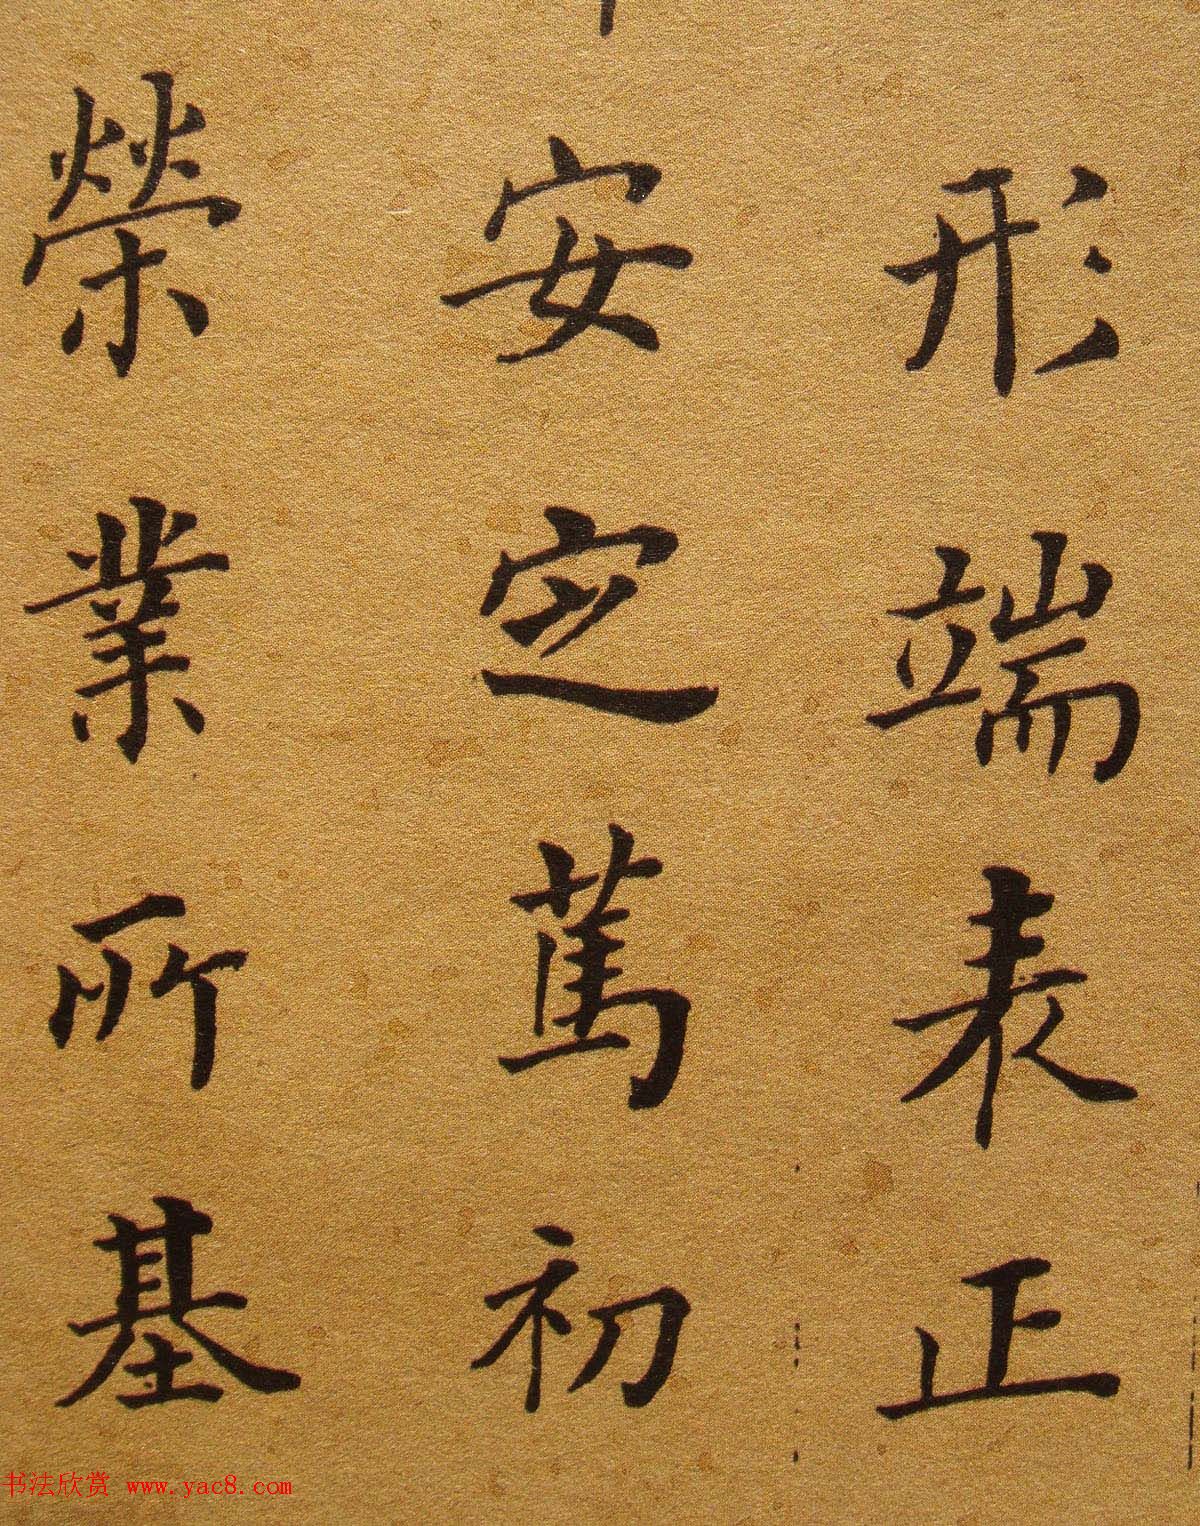 形端表正
安定篤初
榮業所基
书法欣赏 www.yac8.com